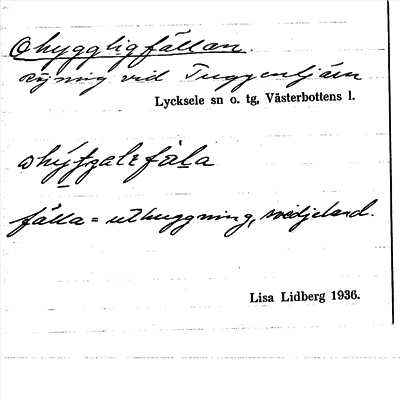 Ohyggligfällan.
Röjning vid Tuggentjärn
Lycksele sn o. tg, Västerbottens l.
fälla = uthuggning, svedjeland.
Lisa Lidberg 1936.